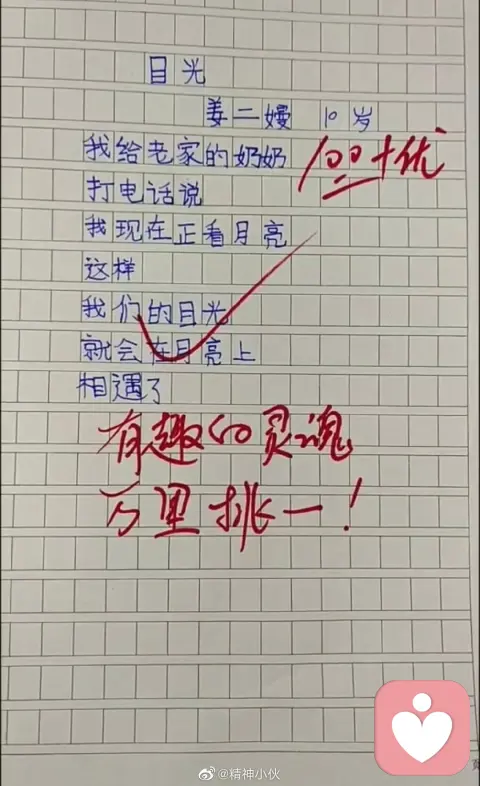 目光
姜二嫚 10岁
我给老家的奶奶
100+优
打电话说
我现在正看月亮
这样
我们的目光
就会在月亮上
相遇了
有趣的灵魂
万里挑一！
@精神小伙